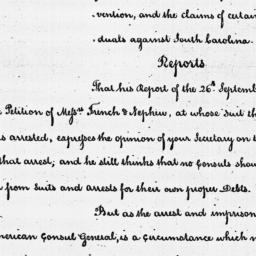 vention, and the claims of certain
duals against South Carolina.
Reports
That his Report of the 26th Septemb
Petition of Messrs French & Nephew, at whose suit th
s arrested, expresses the opinion of your Secretary on t
that arrest; and he still thinks that no Consuls shou
from Suits and arrests for their own proper Debts.
But as the arrest and imprison
merican Consul General, is a circumstance which m